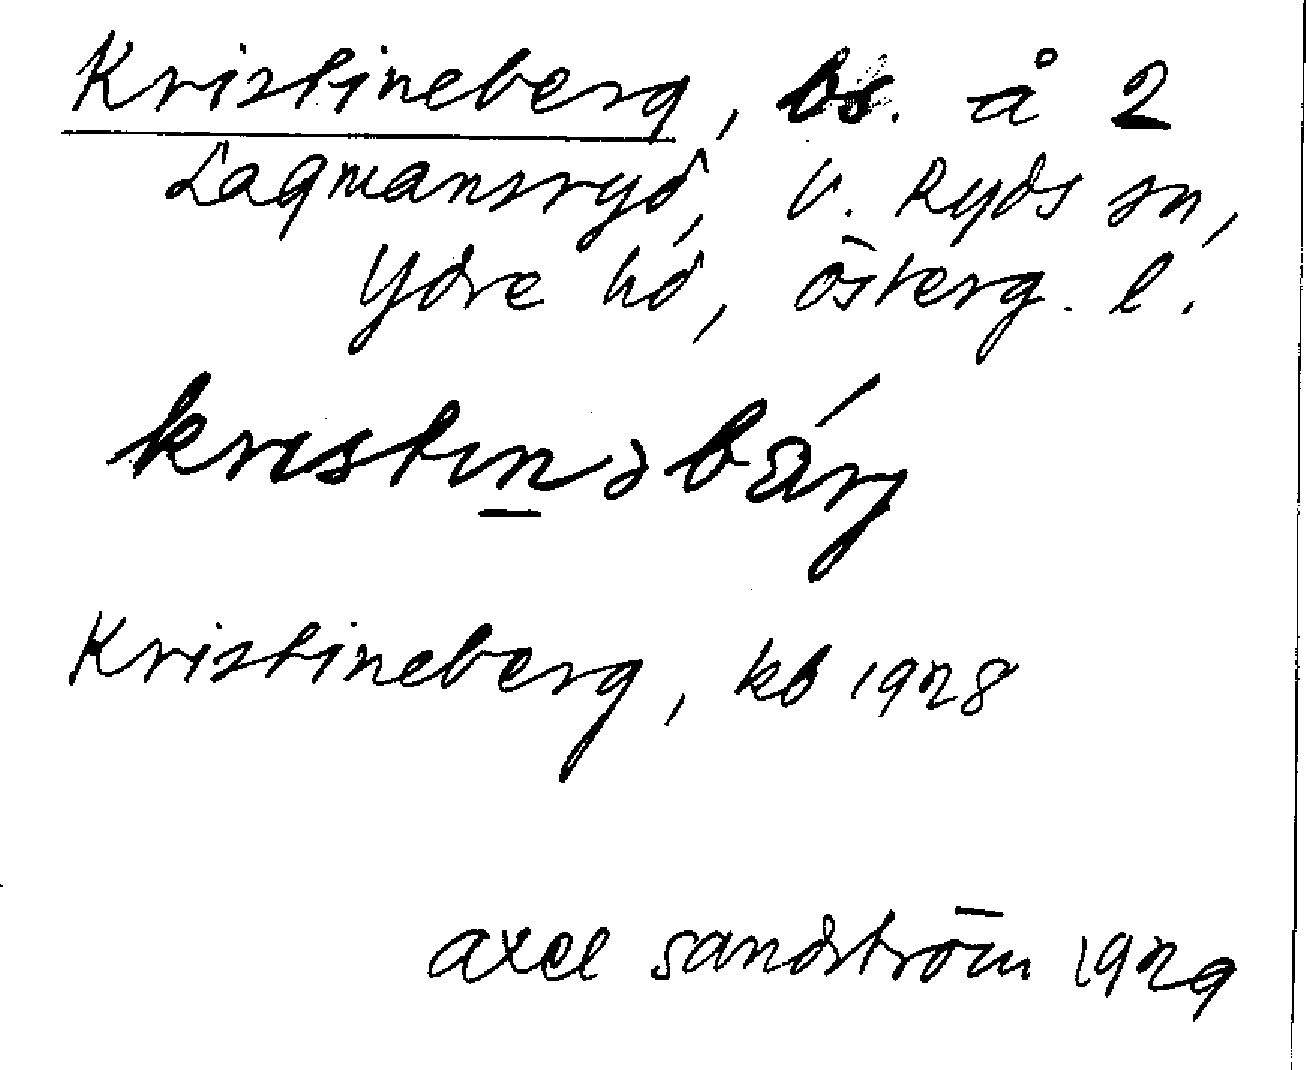 Kristineberg, bs. å 2
Lagmansryd, V. Ryds sn,
Ydre hd, Österg. l.
kristinəbärj
Kristineberg, kb 1928
Axel Sandström 1929